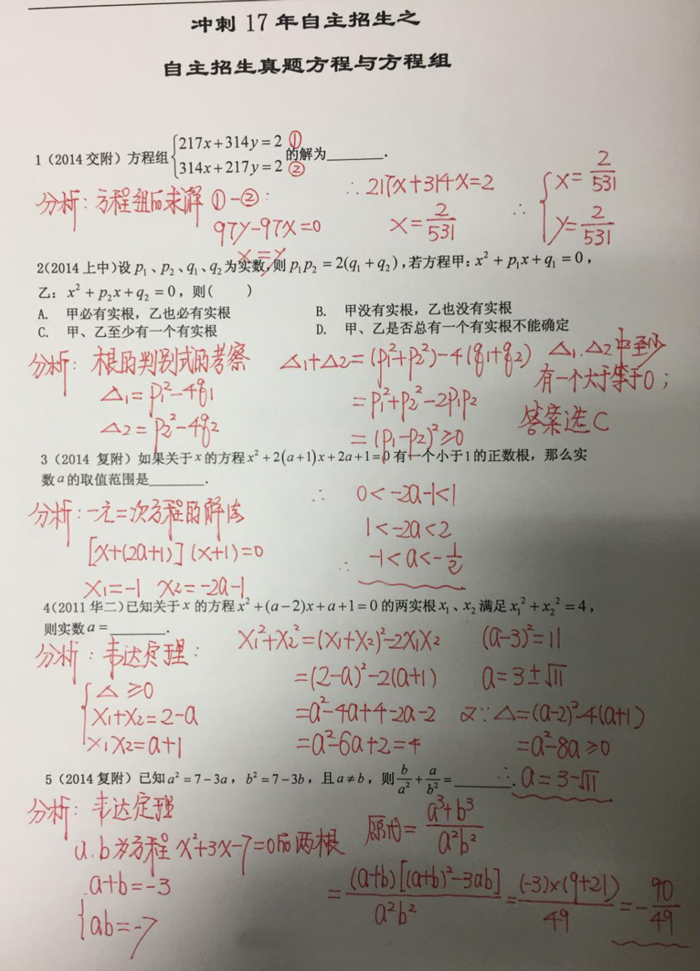 冲刺 17 年自主招生之
自主招生真题方程与方程组
1（2014交附）方程组{217x+314y=2 ① 314x+217y=2 ② 的解为______.
分析: 方程组的求解 ①-②:
97y-97x=0
x=y
∴217x+314x=2
x=2/531
∴{x=2/531
y=2/531
2(2014上中)设p₁、p₂、q₁、q₂为实数,则p₁p₂=2(q₁+q₂),若方程甲:x²+p₁x+q₁=0,
乙:x²+p₂x+q₂=0,则( )
A. 甲必有实根,乙也必有实根 B. 甲没有实根,乙也没有实根
C. 甲、乙至少有一个有实根 D. 甲、乙是否总有一个有实根不能确定
分析: 根的判别式的考察
△1=p1²-4q1
△2=p2²-4q2
△1+△2=(p1²+p2²)-4(q1+q2)
=p1²+p2²-2p1p2
=(p1-p2)²≥0
△1.△2中至少
有一个大于等于0;
答案选C
3（2014 复附）如果关于x的方程x²+2(a+1)x+2a+1=0有一个小于1的正数根,那么实
数a的取值范围是______.
分析:一元二次方程的解法
[x+(2a+1)](x+1)=0
x1=-1 x2=-2a-1
∴ 0<-2a-1<1
1<-2a<2
∴ -1<a<-1/2
4(2011华二)已知关于x的方程x²+(a-2)x+a+1=0的两实根x₁、x₂满足x₁²+x₂²=4,
则实数a=______.
分析:韦达定理:
{△≥0
x1+x2=2-a
x1x2=a+1
x1²+x2²=(x1+x2)²-2x1x2
=(2-a)²-2(a+1)
=a²-4a+4-2a-2
=a²-6a+2=4
(a-3)²=11
a=3±√11
又∵△=(a-2)²-4(a+1)
=a²-8a≥0
∴a=3-√11
5(2014复附)已知a²=7-3a,b²=7-3b,且a≠b,则b/a²+a/b²=______.
分析:韦达定理
a.b为方程x²+3x-7=0的两根
{a+b=-3
ab=-7
原式=(a³+b³)/(a²b²)
=(a+b)[(a+b)²-3ab]/(a²b²)=(-3)×(9+21)/49=-90/49